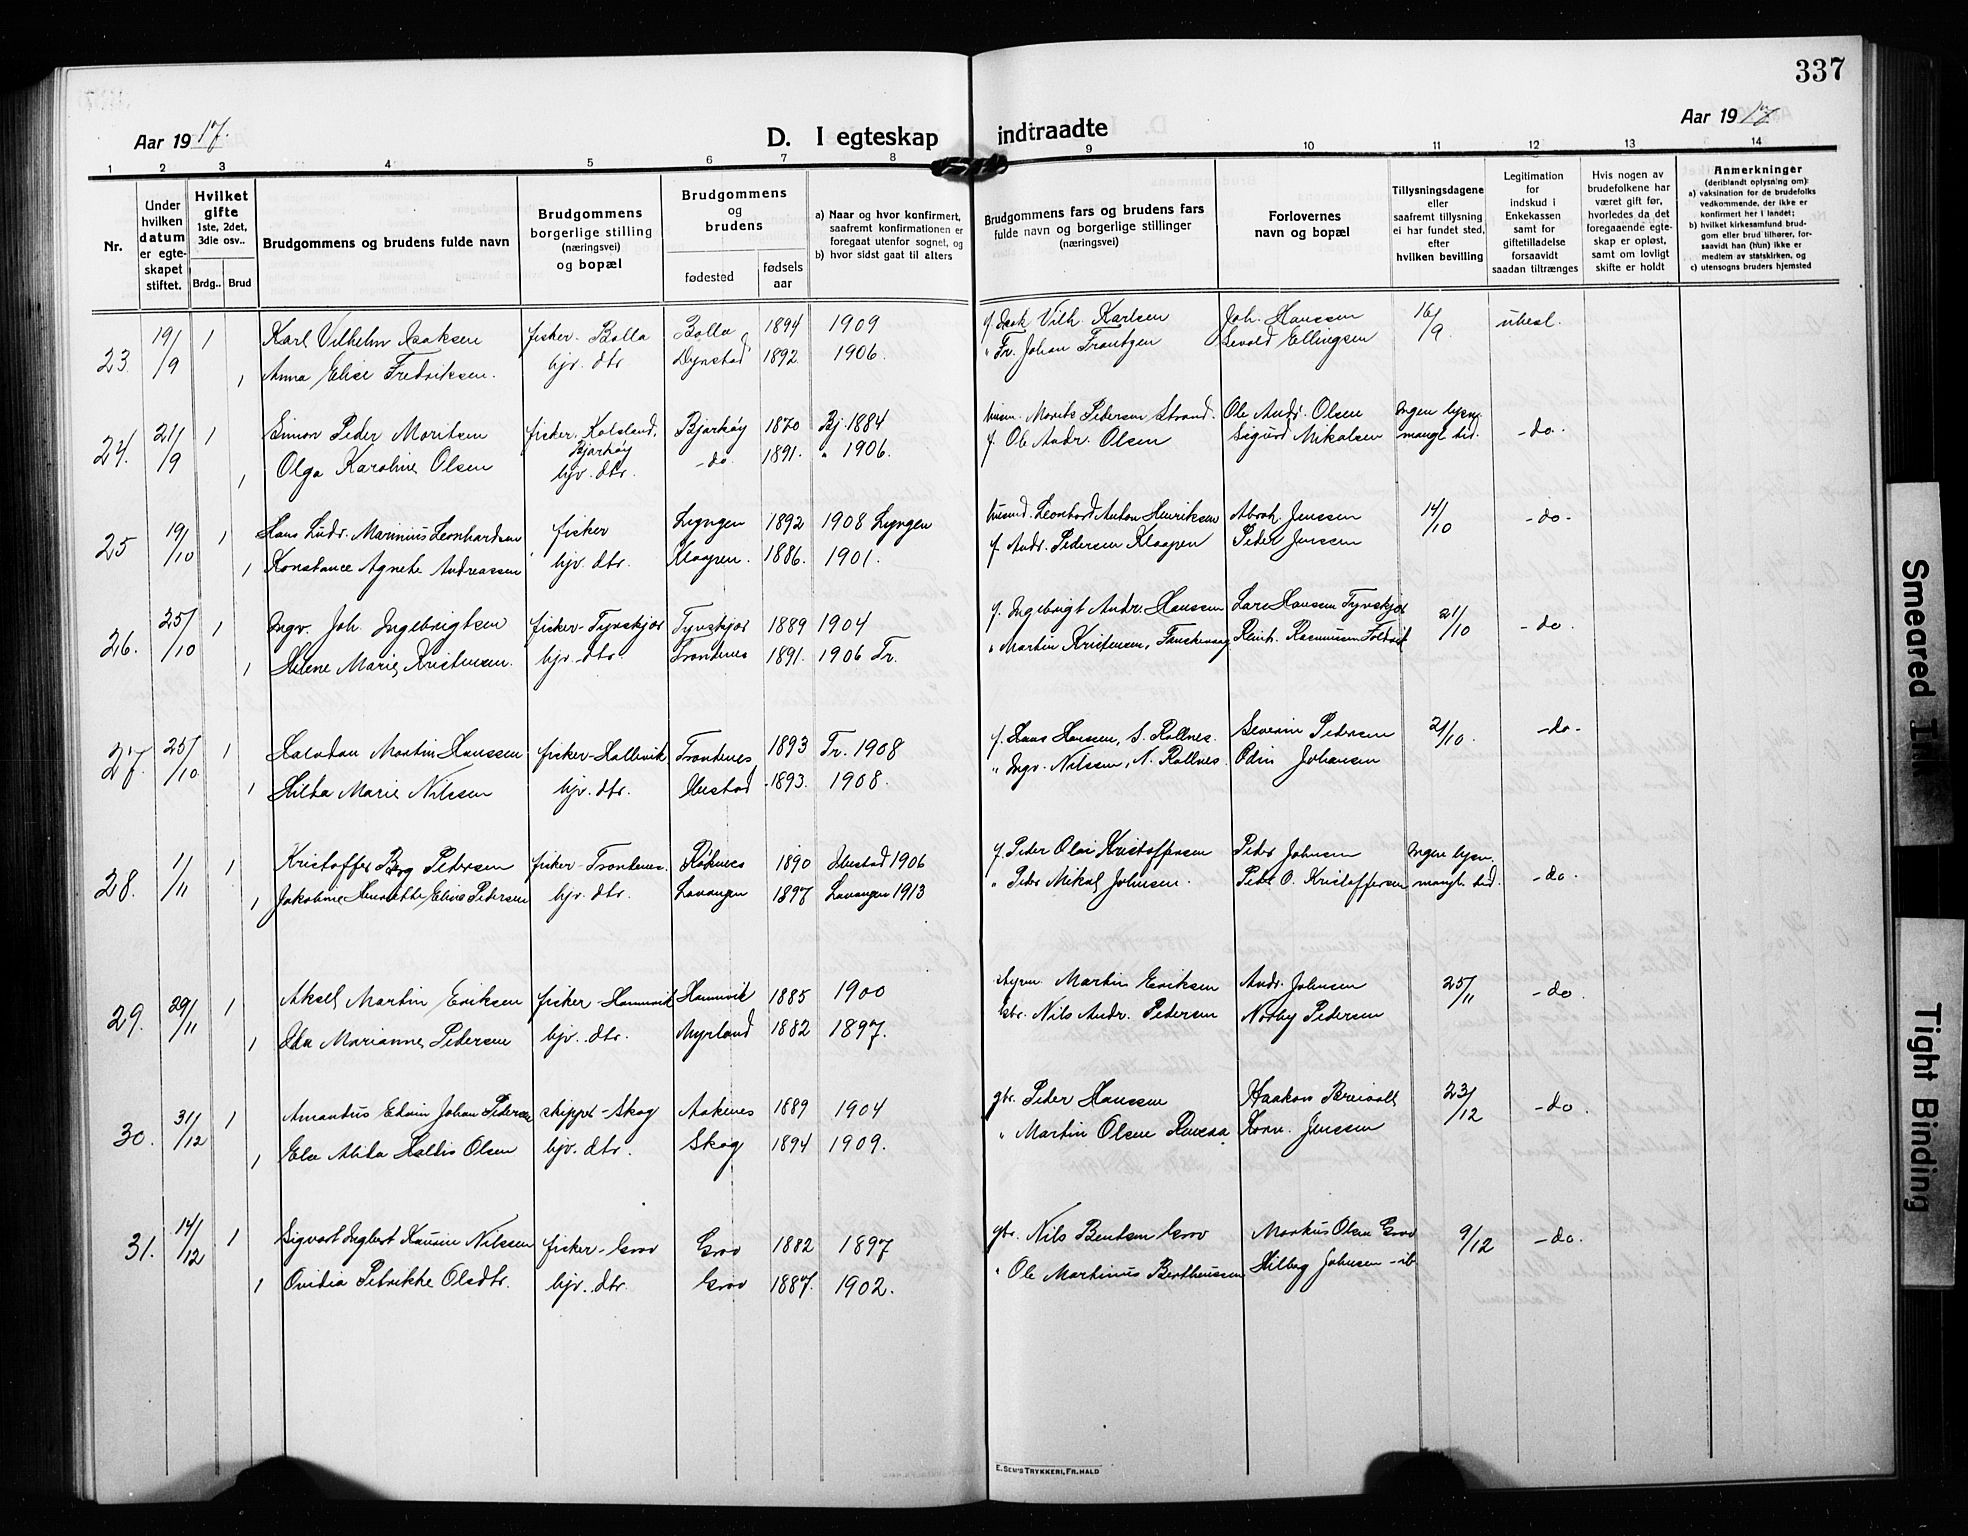 337
Aar 1917.
D. I egteskap indtraadte
Aar 1917
1 2 3 4 5 6 7 8 9 10 11 12 13 14
Nr.
Under hvilken datum er egteskapet stiftet.
Hvilket gifte 1ste, 2det, 3die osv..
Brdg.. Brud
Brudgommens og brudens fulde navn
Brudgommens borgerlige stilling (næringsvei) og bopæl
Brudgommens og brudens
fødested
fødsels aar
a) Naar og hvor konfirmert, saafremt konfirmationen er foregaat utenfor sognet, og
b) hvor sidst gaat til alters
Brudgommens fars og brudens fars fulde navn og borgerlige stillinger (næringsvei)
Forlovernes navn og bopæl
Tillysningsdagene eller saafremt tillysning ei har fundet sted, efter hvilken bevilling
Legitimation for indskud i Enkekassen samt for giftetilladelse forsaavidt saadan tiltrænges
Hvis nogen av brudefolkene har været gift før, hvorledes da det foregaaende egteskap er opløst, samt om lovligt skifte er holdt
Anmerkninger (deriblandt oplysning om):
a) vaksination for de brudefolks vedkommende, der ikke er konfirmert her i landet;
b) hvilket kirkesamfund brudgom eller brud tilhører, forsaavidt han (hun) ikke er medlem av statskirken, og
c) utensogns bruders hjemsted
23. 19/9 1 Karl Vilhelm Isaksen fisker - Bolla Bolla 1894 1909 f. Isak Vilh. Karlsen Joh. Hanssen 16/9 ubesl.
1 Anna Elise Fredriksen. hjv. dtr. 1892 1906. " Fr. Johan Frantzen Sevald Ellingsen
24. 21/9 1 Simon Peder Moritsen fisker Bjarkøy Bjarkøy 1870 Bj. 1884 husm. Morits Pedersen Strand. Ole Andr. Olsen Ingen lysn. mangl. tid. - do.
1 Olga Karoline Olsen hjv. dtr. - do. 1891. " 1906. f. Ole Andr. Olsen Sigurd Mikalsen
25 19/10 1 Hans Ludv. Marinius Leonhardsen fisker Lyngen 1892 1908 Lyngen husmd. Leonhard Anton Henriksen Abrah. Jenssen 14/10 - do -
1 Konstance Agnete Andreassen hjv. dtr. Kloapen. 1886. 1901. f. Andr. Pedersen Kloapen Peder Jenssen
26. 25/10 1 Ingv. Joh. Ingebrigtsen fisker - Tyvskjær Tyvskjær 1889 1904 f. Ingebrigt Andr. Hanssen Lars Hansen Tyvskjær 21/10 - do.
1 Helene Marie Kristensen. hjv. dtr. Trondenes 1891. 1906 Tr. " Martin Kristensen, Reinh. Rasmussen
27. 25/10 1 Halvdan Martin Hanssen fisker - Hallevik Trondenes 1893 Tr. 1908 f. Hans Hansen, S. Rollnes. Severin Pedersen 21/10. - do -
1 Hilda Marie Nilssen hjv. dtr. 1893. 1908. " Ingv. Nilssen, N. Rollnes. Odin Johansen
28. 1/11 1 Kristoffer Berg Pedersen fisker - Trondenes. Røknes 1890 Ibestad 1906 f. Peder Olai Kristoffersen Peder Johnsen Ingen lysn. mangl. tid. - do.
1 Jakobine Henriette Elise Pedersen hjv. dtr. Lavangen 1897 Lavangen 1913 " Peder Mikal Johnsen. Peder O. Kristoffersen
29. 29/11 1 Aksel Martin Eriksen fisker - Hamnvik Hamnvik 1885 1900 Martin Eriksen Andr. Johnsen 25/11 - do.
1 Ida Marianne Pedersen hjv. dtr. Myrland 1882 1897. gbr. Nils Andr. Pedersen Norby Pedersen
30. 31/12 1 Amandus Edvin Johan Pedersen skipper - Skog Aakenes 1889 1904 gbr. Peder Hanssen Haakon Breivoll 23/12 - do.
1 Else Alida Haldis Olsen hjv. dtr. Skog 1894 1909. " Martin Olsen Konr. Jenssen
31. 14/12 1 Sigvart Ingbert Nilssen fisker - Grov Grov 1882 1897 gbr. Nils Bentsen Grov Markus Olsen Grov 9/12 - do.
1 Ovidia Petrikke Olsdtr. hjv. dtr. Grov 1887. 1902. " Ole Martinus Bertheussen Hilberg Johnsen - ib.
E. SEM'S TRYKKERI, FR. HALD
Smeared Ink
Tight Binding